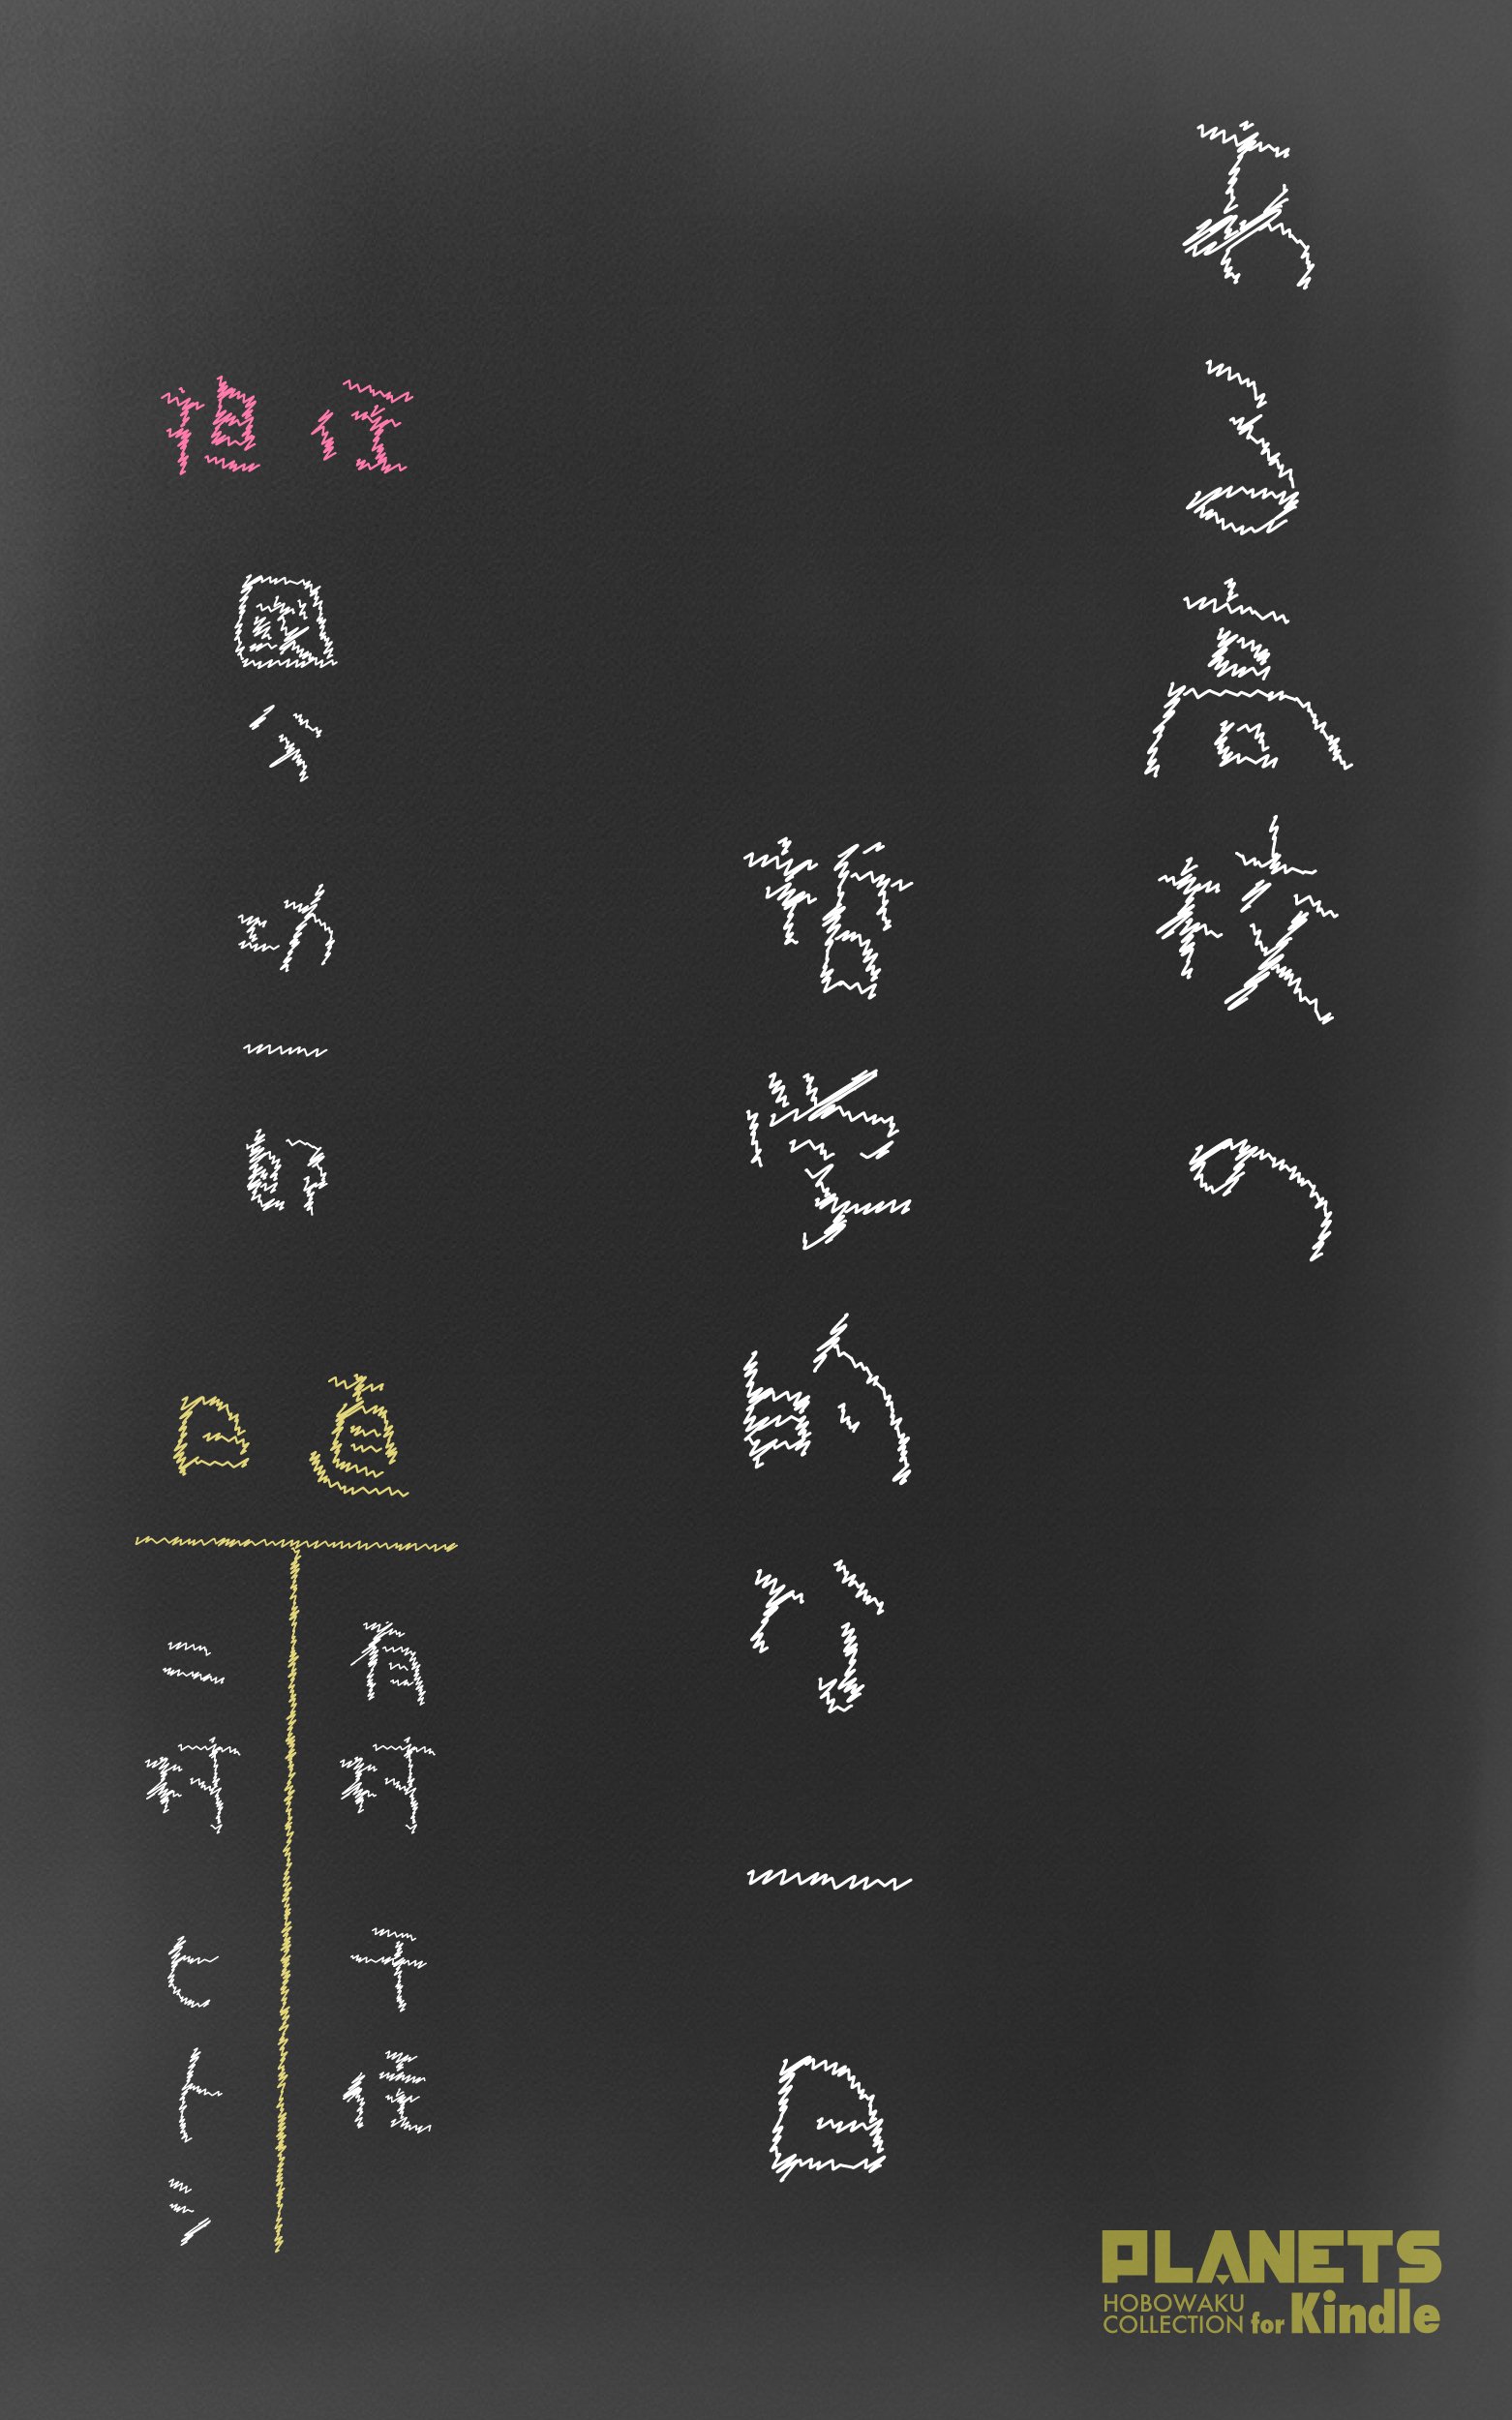 ある高校の
哲学的な一日
担任
國分功一郎
日直
有村千佳
二村ヒトシ
PLANETS
HOBOWAKU
COLLECTION for Kindle